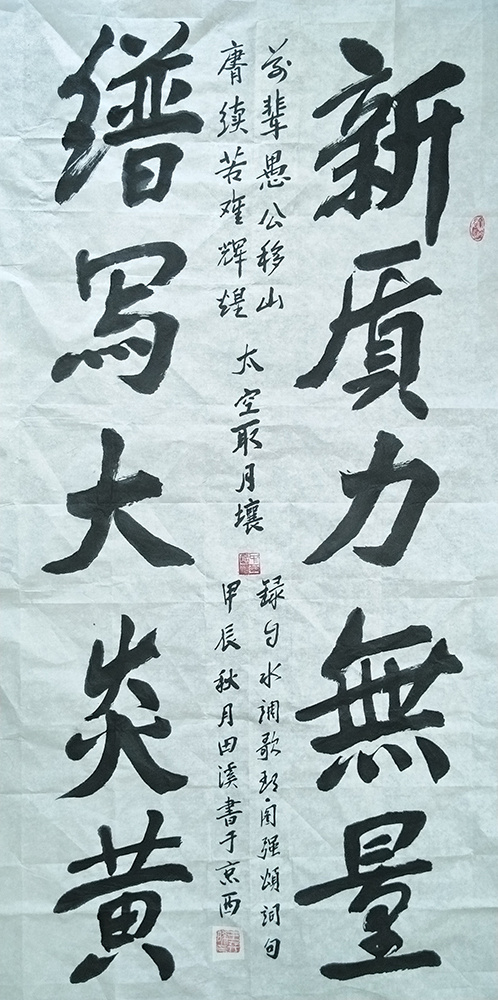 新质力無量
谱写大炎黄
前辈愚公移山
赓续苦难辉煌
太空取月壤
録自水調歌头·自强颂词句
甲辰秋月田溪書于京西